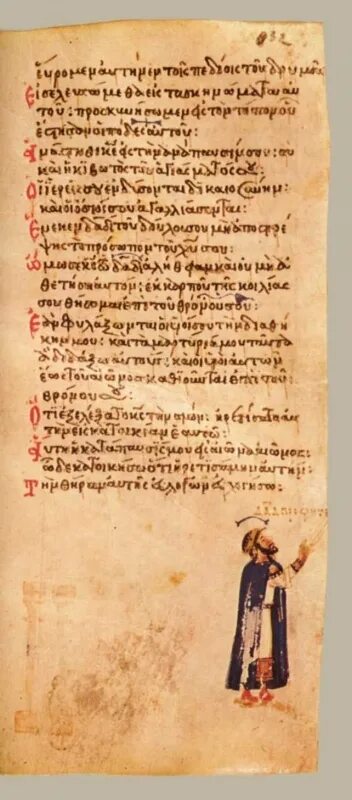 εὕρομεν αὐτὴν ἐν τοῖς πεδίοις τοῦ δρυμοῦ
Εἰσελευσώμεθα εἰς τὰ σκηνώματα αὐ
τοῦ: προσκυνήσωμεν εἰς τὸν τόπον οὗ
ἔστησαν οἱ πόδες αὐτοῦ:
Ἀνάστηθι κε εἰς τὴν ἀνάπαυσίν σου: σὺ
καὶ ἡ κιβωτὸς τοῦ ἁγιάσματός σου:
Οἱ ἱερεῖς σου ἐνδύσονται δικαιοσύνην:
καὶ οἱ ὅσιοί σου ἀγαλλιάσονται:
Ἕνεκεν δαδ τοῦ δούλου σου μὴ ἀποστρέ
ψῃς τὸ πρόσωπον τοῦ χυ σου:
Ὤμοσεν κς τῷ δαδ ἀλήθειαν καὶ οὐ μὴ ἀ
θετήσει αὐτόν: ἐκ καρποῦ τῆς κοιλίας
σου θήσομαι ἐπὶ τοῦ θρόνου σου:
Ἐὰν φυλάξωνται οἱ υἱοί σου τὴν διαθή
κην μου: καὶ τὰ μαρτύριά μου ταῦτα
ἃ διδάξω αὐτούς: καὶ οἱ υἱοὶ αὐτῶν
ἕως τοῦ αἰῶνος καθιοῦνται ἐπὶ τοῦ
θρόνου σου:
Ὅτι ἐξελέξατο κς τὴν σιών: ᾑρετίσατο αὐ
τὴν εἰς κατοικίαν ἑαυτῷ:
Αὕτη ἡ κατάπαυσίς μου εἰς αἰῶνα αἰῶνος:
ὧδε κατοικήσω ὅτι ᾑρετισάμην αὐτήν:
Τὴν θήραν αὐτῆς εὐλογῶν εὐλογήσω: